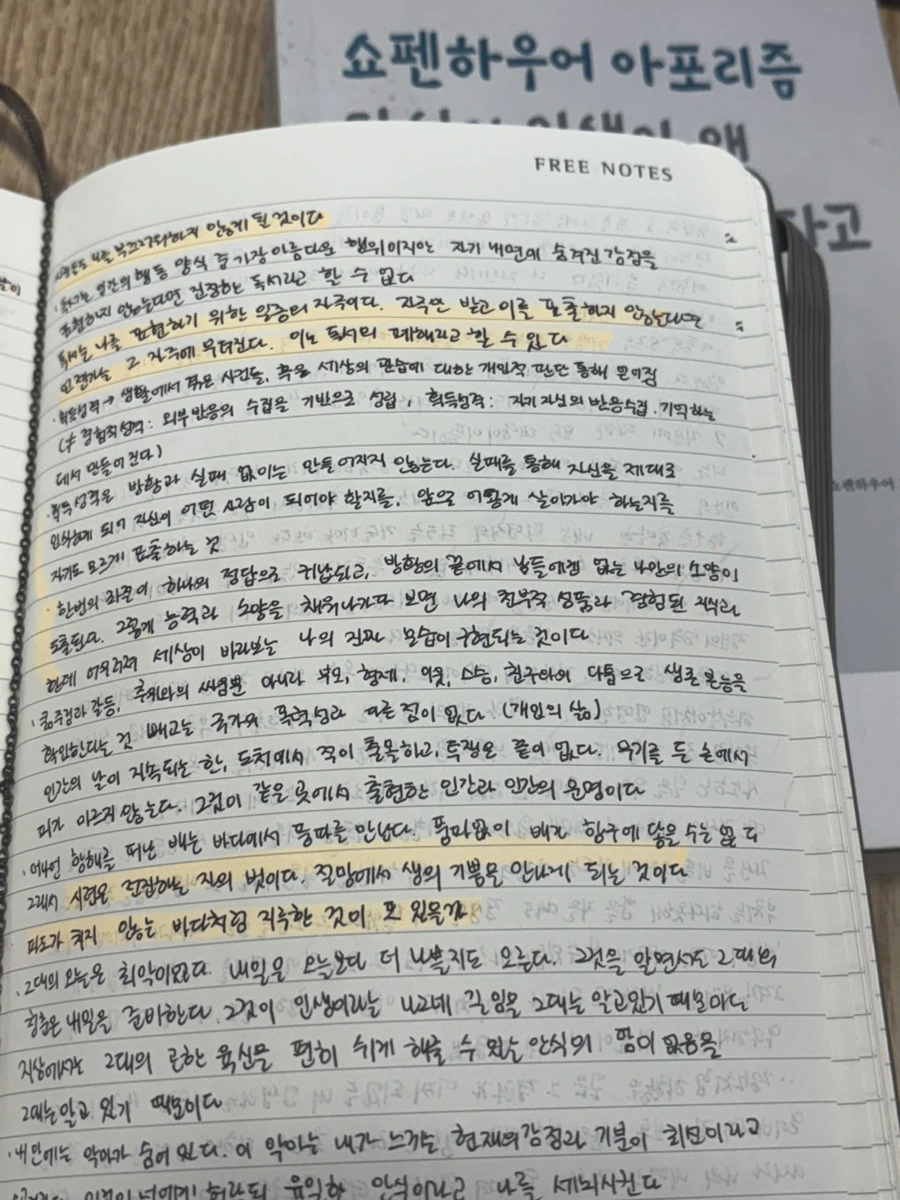 쇼펜하우어 아포리즘
FREE NOTES
부끄러워하지 않게 될 것이다
· 독서는 인간의 행동 양식 중 가장 아름다운 행위이지만 자기 내면에 숨겨진 감정을
표현하지 않는다면 진정한 독서라고 할 수 없다
독서는 나를 표현하기 위한 일종의 자극이다. 자극만 받고 이를 표출하지 않는다면
언젠가는 그 자극에 무뎌진다. 이는 독서의 폐해라고 할 수 있다
· 획득성격 → 생활에서 겪은 사건들, 혹은 세상의 관습에 대한 개인적 판단 통해 만들어짐
(≠ 경험적성격 : 외부반응의 수집을 기반으로 성립, 획득성격 : 자기 자신의 반응수집·기억하는
데서 만들어진다)
· 획득성격은 방황과 실패 없이는 만들어지지 않는다. 실패를 통해 자신을 제대로
인식하게 되기 자신이 어떤 사람이 되어야 할지를, 앞으로 어떻게 살아가야 하는지를
자기도 모르게 표출하는 것
· 한번의 좌절이 하나의 정답으로 귀납되고, 방황의 끝에서 남들에겐 없는 나만의 소양이
도출된다. 그렇게 능력과 소양을 채워나가다 보면 나의 천부적 성품과 경험된 지식과
한데 어우러져 세상이 바라보는 나의 진짜 모습이 구현되는 것이다
· 갈등, 추위와의 싸움뿐 아니라 부모, 형제, 이웃, 스승, 친구와의 다툼으로 생존본능을
확인한다는 것 빼고는 국가의 폭학성과 다른 점이 없다. (개인의 삶)
인간의 날이 지속되는 한, 도처에서 적이 출몰하고, 투쟁은 끝이 없다. 무기를 든 손에서
피가 마르지 않는다. 그것이 같은 곳에서 출현한 인간과 인간의 운명이다
· 어쩌면 항해를 떠난 배는 바다에서 풍파를 만난다. 풍파없이 배가 항구에 닿을 수는 없다
그래서 시련은 전진하는 자의 벗이다. 절망에서 생의 기쁨을 만나게 되는 것이다
파도가 치지 않는 바다처럼 지루한 것이 또 있을까
· 그대의 오늘은 최악이었다. 내일은 오늘보다 더 나쁠지도 모른다. 그것을 알면서도 그대의
청춘은 내일을 준비한다. 그것이 인생이라는 나그네 길임을 그대는 알고있기 때문이다
지상에서는 그대의 곤한 육신을 편히 쉬게 해줄 수 있는 안식의 땅이 없음을
그대는 알고 있기 때문이다
· 내 안에는 악마가 숨어 있다. 이 악마는 내가 느끼는 현재의 감정과 기분이 최선이라고
너에게 허락된 유일한 안식이라고 나를 세뇌시킨다